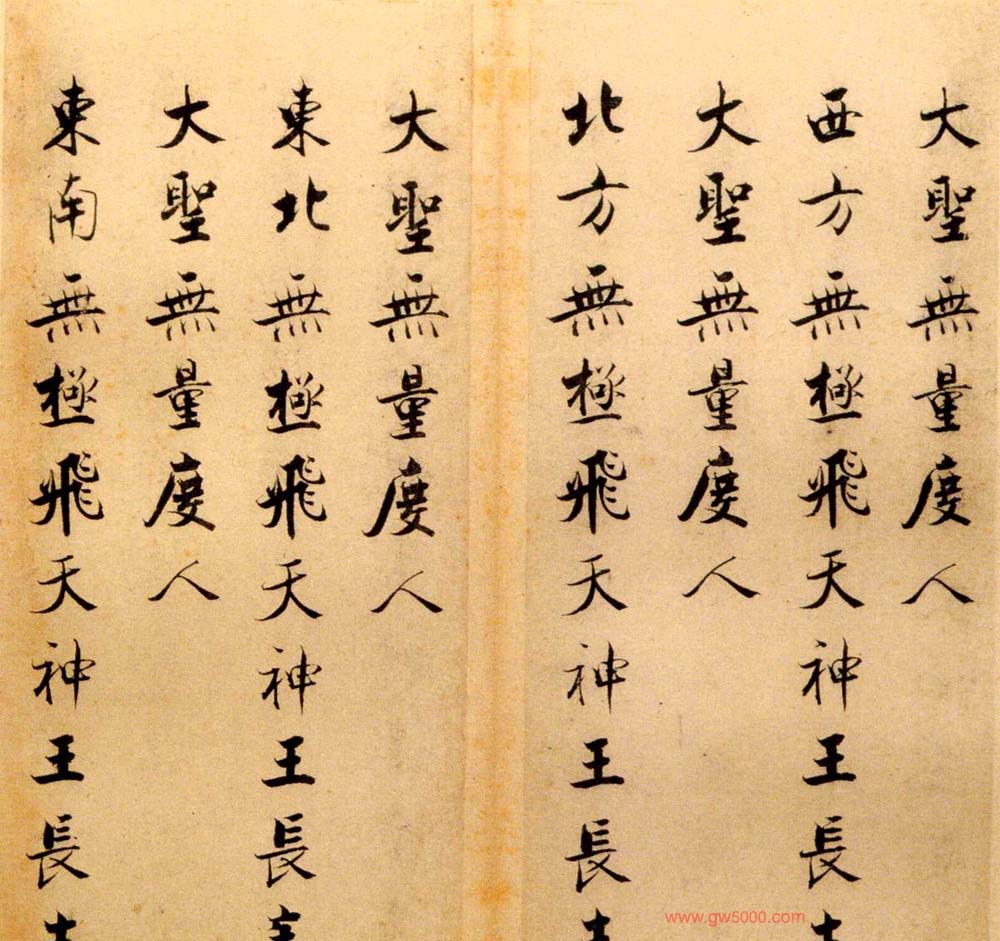 大聖無量度人
西方無極飛天神王長
大聖無量度人
北方無極飛天神王長
大聖無量度人
東北無極飛天神王長
大聖無量度人
東南無極飛天神王長
www.gw5000.com